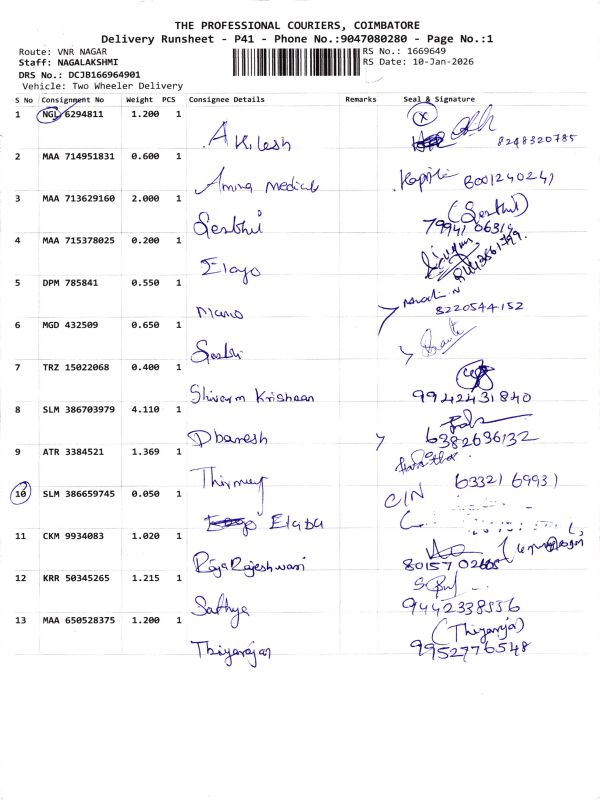 THE PROFESSIONAL COURIERS, COIMBATORE
Delivery Runsheet - P41 - Phone No.:9047080280 - Page No.:1
Route: VNR NAGAR
RS No.: 1669649
Staff: NAGALAKSHMI
RS Date: 10-Jan-2026
DRS No.: DCJB166964901
Vehicle: Two Wheeler Delivery
S No Consignment No Weight PCS Consignee Details Remarks Seal & Signature
1 NGL 6294811 1.200 1
Akilesh 8248320785
2 MAA 714951831 0.600 1
Amma Medical
3 MAA 713629160 2.000 1
Senthil (Senthil)
4 MAA 715378025 0.200 1
5 DPM 785841 0.550 1
Mano 8220544152
6 MGD 432509 0.650 1
7 TRZ 15022068 0.400 1
Shivam Krishnan 9942431840
8 SLM 386703979 4.110 1
Dhanesh 6382696132
9 ATR 3384521 1.369 1
63321 69931
10 SLM 386659745 0.050 1
C/N
11 CKM 9934083 1.020 1
Raja Rajeshwari
12 KRR 50345265 1.215 1
Sathya
13 MAA 650528375 1.200 1
Thiyarajan 9952776548